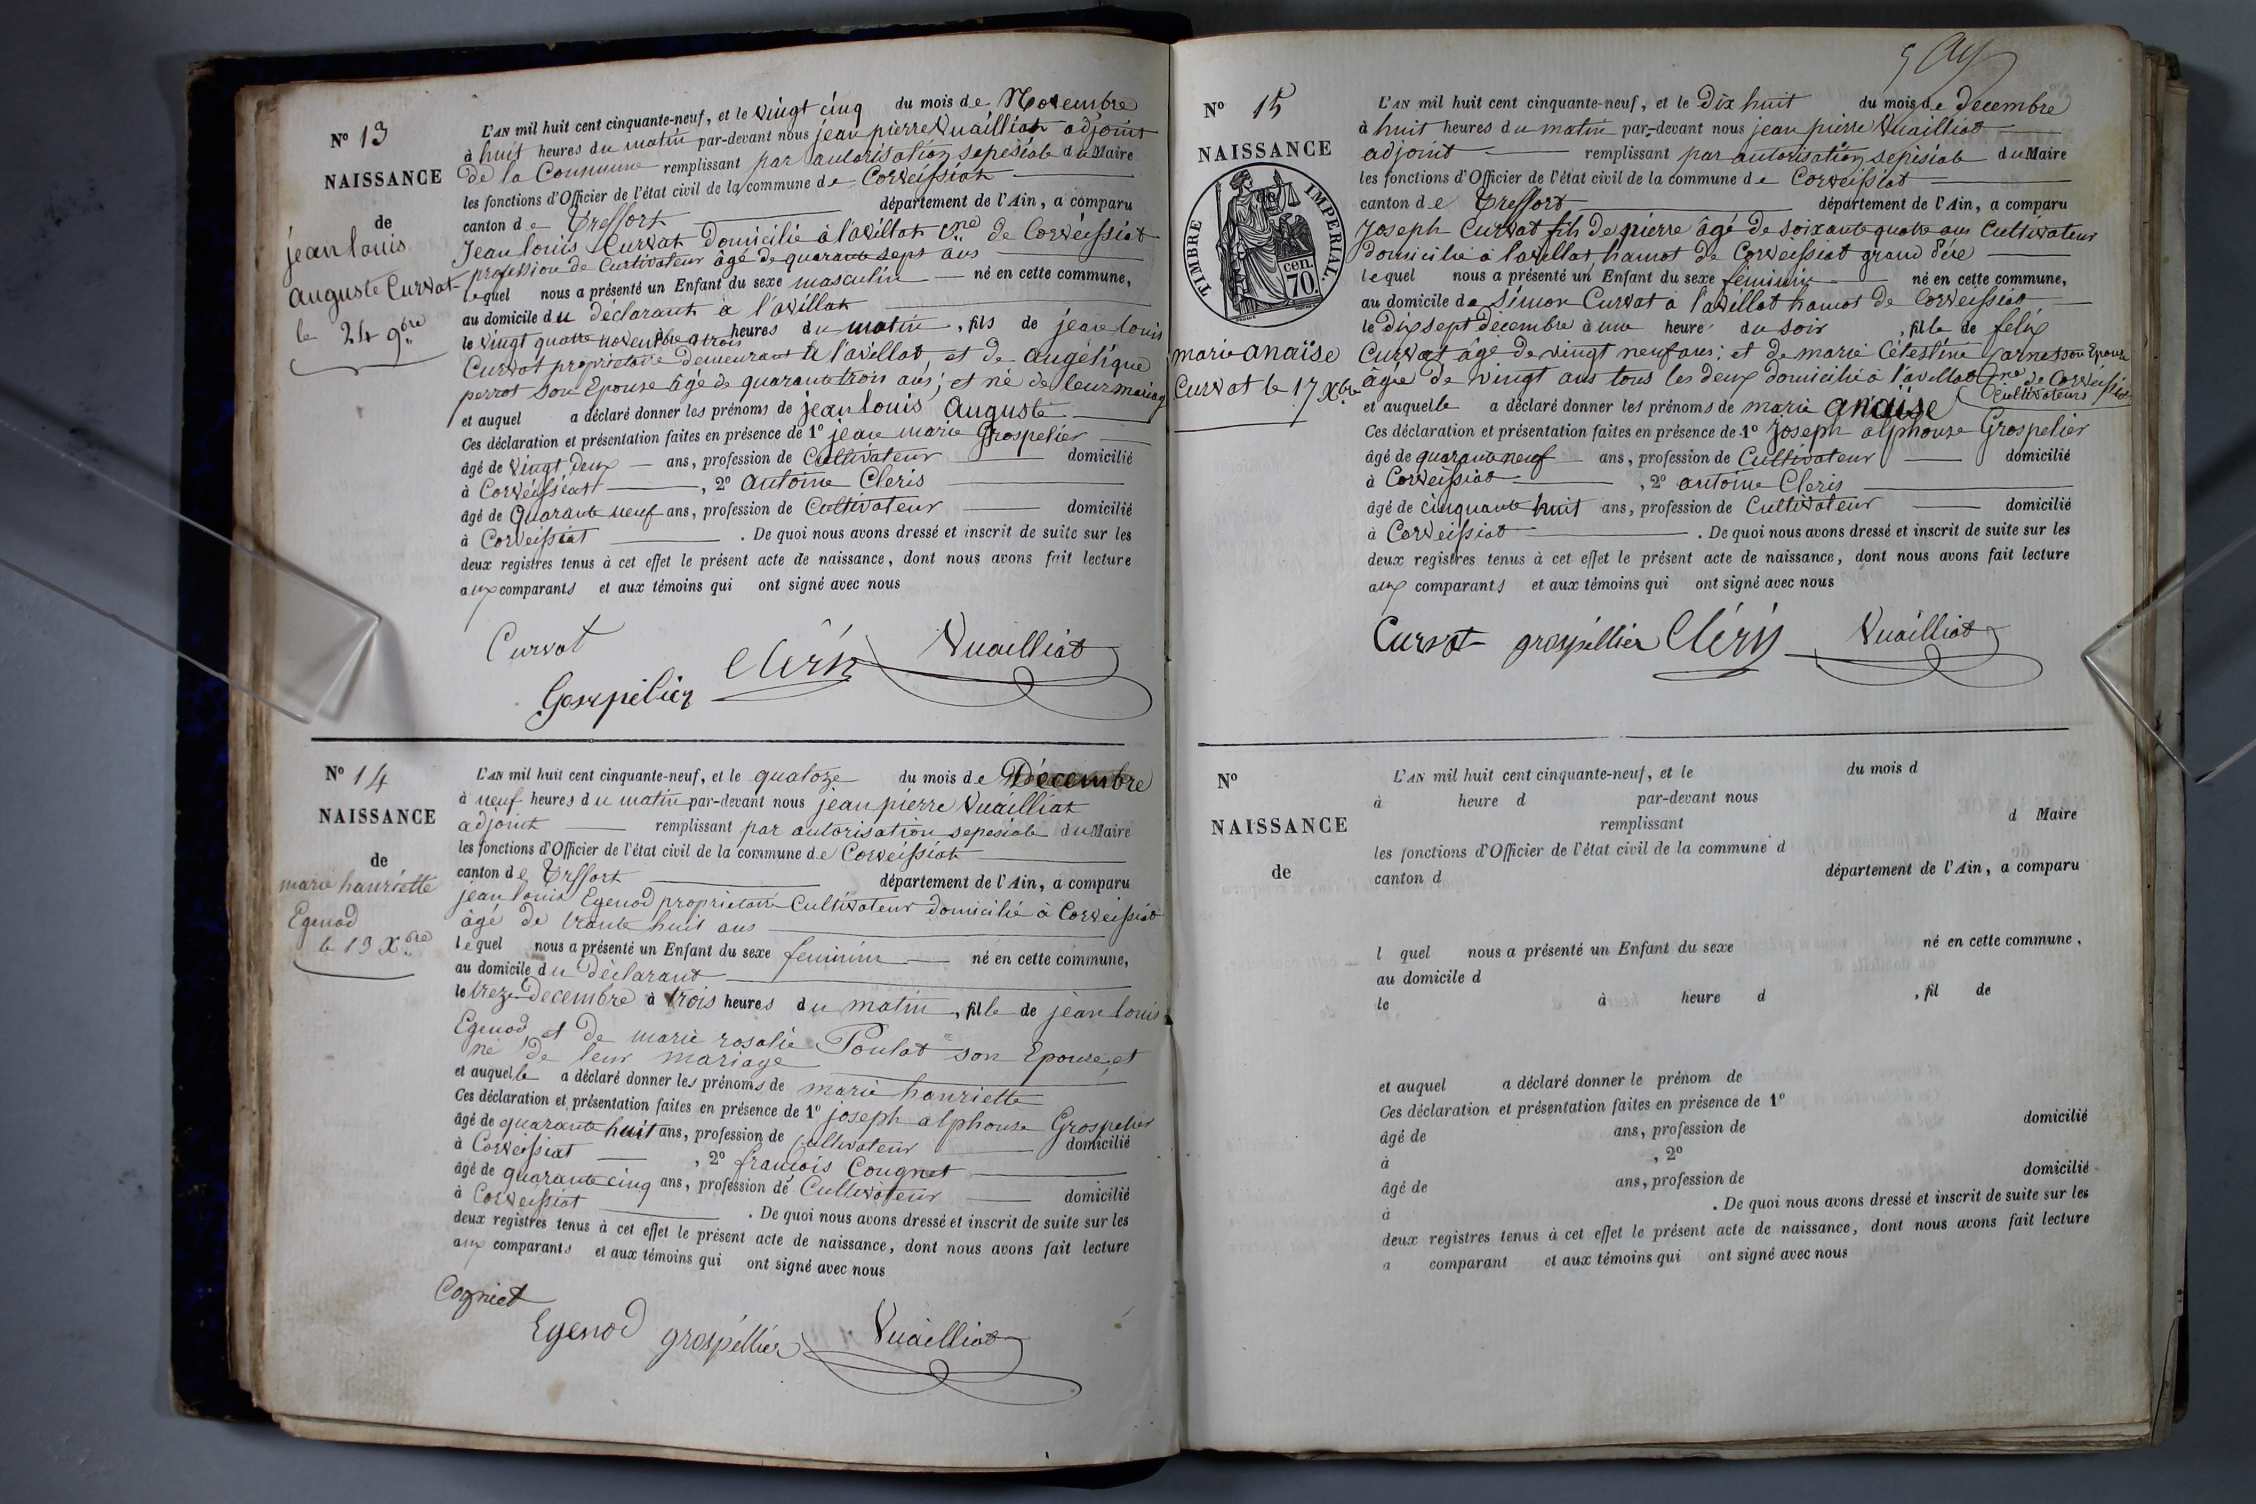 N° 13
NAISSANCE
de
jean louis
auguste Curvat
le 24 9bre
L'AN mil huit cent cinquante-neuf, et le vingt cinq du mois de Novembre
à huit heures du matin par-devant nous jean pierre Vuailliat adjoint
de la Commune remplissant par autorisation sepesiale du Maire
les fonctions d'Officier de l'état civil de la commune de Corveissiat
canton de Treffort département de l'Ain, a comparu
Jean louis Curvat domicilié à l'avillat cne de Corveissiat
profession de Curtivateur âgé de quarante sept ans
lequel nous a présenté un Enfant du sexe masculin né en cette commune,
au domicile du declarant à l'avillat
le vingt quatre novembre a trois heures du matin, fils de jean louis
Curvat proprietaire demeurant a l'avillat et de angélique
perrot son Epouse âgé de quarante trois ans; et né de leur mariag
et auquel a déclaré donner les prénoms de jean louis Auguste
Ces déclaration et présentation faites en présence de 1° jean marie Grospelier
âgé de vingt deux ans, profession de Cultivateur domicilié
à Corveissiat, 2° antoine Cleris
âgé de Quarante neuf ans, profession de Cultivateur domicilié
à Corveissiat. De quoi nous avons dressé et inscrit de suite sur les
deux registres tenus à cet effet le présent acte de naissance, dont nous avons fait lecture
aux comparants et aux témoins qui ont signé avec nous
Curvat Clérn Vuailliat
Gospélier
N° 14
NAISSANCE
de
marie hanriette
Egenod
le 13 Xbre
L'AN mil huit cent cinquante-neuf, et le quatoze du mois de Décembre
à neuf heures du matin par-devant nous jean pierre Vuailliat
adjoint remplissant par autorisation sepesiale du Maire
les fonctions d'Officier de l'état civil de la commune de Corveissiat
canton de Treffort département de l'Ain, a comparu
jean louis Egenod proprietaire Cultivateur domicilié à Corveissiat
âgé de trante huit ans
lequel nous a présenté un Enfant du sexe feminin né en cette commune,
au domicile du déclarant
le treze Decembre à trois heures du matin, fille de jean louis
Egenod et de marie rosalie Poulat son Epouse, et
né de leur mariage
et auquelle a déclaré donner les prénoms de marie hanriette
Ces déclaration et présentation faites en présence de 1° joseph alphonse Grospelier
âgé de quarante huit ans, profession de Cultivateur domicilié
à Corveissiat, 2° francois Cougnet
âgé de quarante cinq ans, profession de Cultivateur domicilié
à Corveissiat. De quoi nous avons dressé et inscrit de suite sur les
deux registres tenus à cet effet le présent acte de naissance, dont nous avons fait lecture
aux comparants et aux témoins qui ont signé avec nous
Cogniet
Egenod grospéllier Vuailliat
N° 15
NAISSANCE
de
TIMBRE IMPERIAL.
70 cen.
marie anaïse
Curvat le 17 Xbre
L'AN mil huit cent cinquante-neuf, et le Dix huit du mois de decembre
à huit heures du matin par-devant nous jean pierre Vuailliat
adjoint remplissant par autorisation sepisiale du Maire
les fonctions d'Officier de l'état civil de la commune de Corveissiat
canton de Treffort département de l'Ain, a comparu
Joseph Curvat fils de pierre âgé de soixante quatre ans Cultivateur
domicilié a lavillat hamot de Corveissiat grand Pére
lequel nous a présenté un Enfant du sexe féminin né en cette commune,
au domicile de Simon Curvat a l'avillat hamot de Corveissiat
le Dix sept decembre à une heure du soir, fille de felix
Curvat âgé de vingt neuf ans; et de marie Célestine Carnet son Epouse
âgée de vingt ans tous les deux domicilié à l'avillat cne de Corveissiat
Cultivateurs
et auquelle a déclaré donner les prénoms de marie anaïse
Ces déclaration et présentation faites en présence de 1° Joseph alphonse Grospelier
âgé de quarante neuf ans, profession de Cultivateur domicilié
à Corveissiat, 2° antoine Cleris
âgé de cinquante huit ans, profession de Cultivateur domicilié
à Corveissiat. De quoi nous avons dressé et inscrit de suite sur les
deux registres tenus à cet effet le présent acte de naissance, dont nous avons fait lecture
aux comparants et aux témoins qui ont signé avec nous
Curvat grospéllier Clérn Vuailliat
N°
NAISSANCE
de
L'AN mil huit cent cinquante-neuf, et le du mois d
à heure d par-devant nous
remplissant d Maire
les fonctions d'Officier de l'état civil de la commune d
canton d département de l'Ain, a comparu
l quel nous a présenté un Enfant du sexe né en cette commune,
au domicile d
le à heure d, fil de
et auquel a déclaré donner le prénom de
Ces déclaration et présentation faites en présence de 1°
âgé de ans, profession de domicilié
à, 2°
âgé de ans, profession de domicilié
à. De quoi nous avons dressé et inscrit de suite sur les
deux registres tenus à cet effet le présent acte de naissance, dont nous avons fait lecture
a comparant et aux témoins qui ont signé avec nous